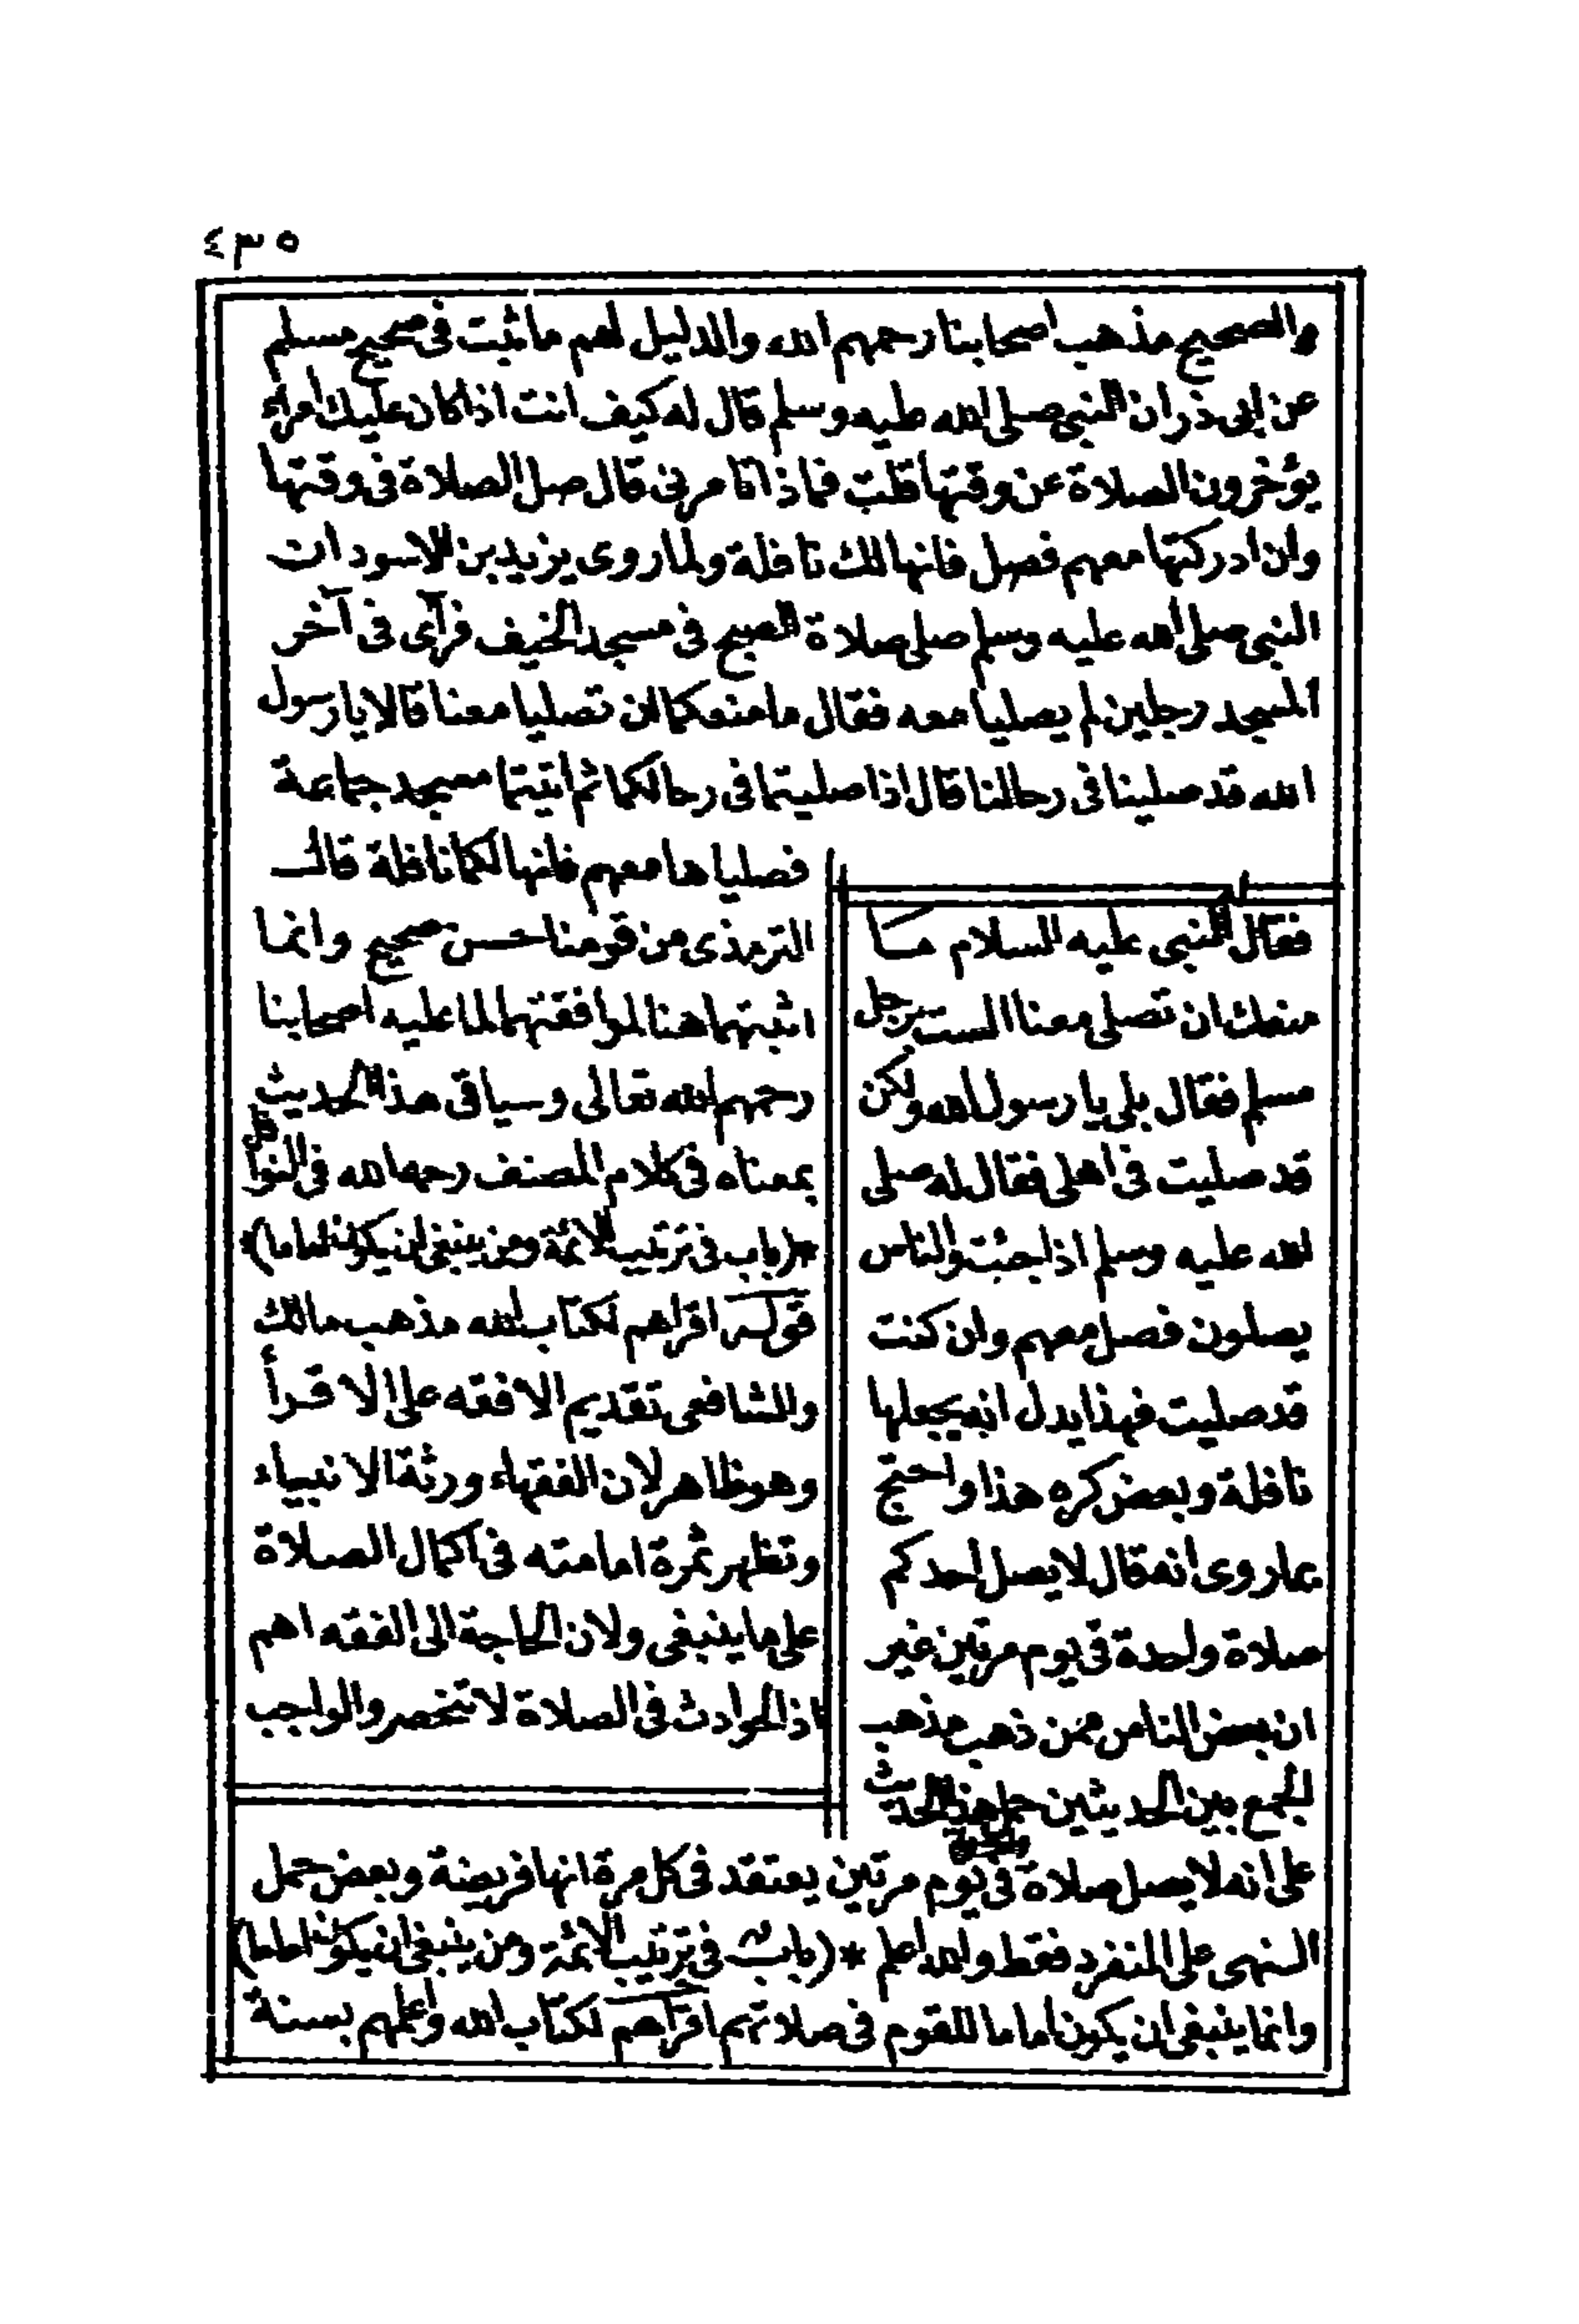 ٤٣٥
والصحيح مذهب اصحابنا رحمهم الله والدليل لهم ما ثبت فى صحيح مسلم
عن ابى ذر ان النبى صلى الله عليه وسلم قال له كيف انت اذا كان عليك امراء
يؤخرون الصلاة عن وقتها قلت فماذا تامرنى قال صل الصلاة فى وقتها
وان ادركتها معهم فصل فانها لك نافلة ولما روى يزيد بن الاسود ان
النبى صلى الله عليه وسلم صلى صلاة الصبح فى مسجد الخيف فرآى فى آخر
المسجد رجلين لم يصليا معه فقال ما منعكما ان تصليا معنا قالا يا رسول
الله قد صلينا فى رحالنا قال اذا صليتما فى رحالكما ثم اتيتما مسجد جماعة
فصلياها معهم فانها لكما نافلة قال
الترمذى من قومنا حسن صحيح وانما
اثبتهما هنا لموافقتهما لما عليه اصحابنا
رحمهم الله تعالى وسياتى هذا الحديث
بمعناه فى كلام المصنف رحمه الله فى النوافل
*(باب فى ترتيب الائمة ومن ينبغى ان يكون اماما)*
قوله اقراهم لكتاب الله مذهب مالك
والشافعى تقديم الافقه على الاقرأ
وهو ظاهر لان الفقهاء ورثة الانبياء
وتظهر ثمرة امامته فى اكمال الصلاة
على ما ينبغى ولان الحاجة الى الفقه اهم
اذ الحوادث فى الصلاة لا تنحصر والواجب
فقال النبى عليه السلام ما
منعك ان تصلى معنا الست برجل
مسلم فقال بلى يا رسول الله ولكن
قد صليت فى اهلى فقال له صلى
الله عليه وسلم اذا جئت والناس
يصلون فصل معهم وان كنت
قد صليت فهذا يدل انه يجعلها
نافلة وبعض كره هذا واحتج
بما روى انه قال لا يصل احدكم
صلاة واحدة فى يوم مرتين غير
ان بعض الناس ممن ذهب مذهب
الجمع بين الحديثين حمل هذا الحديث
على انه لا يصل صلاة فى يوم مرتين يعتقد فى كل مرة انها فريضة وبعض حمل
النهى على المنفرد فقط والله اعلم *(باب فى ترتيب الائمة ومن ينبغى ان يكون اماما)
وانما ينبغى ان يكون اماما للقوم فى صلاتهم اقرأهم لكتاب الله واعلمهم بسنة